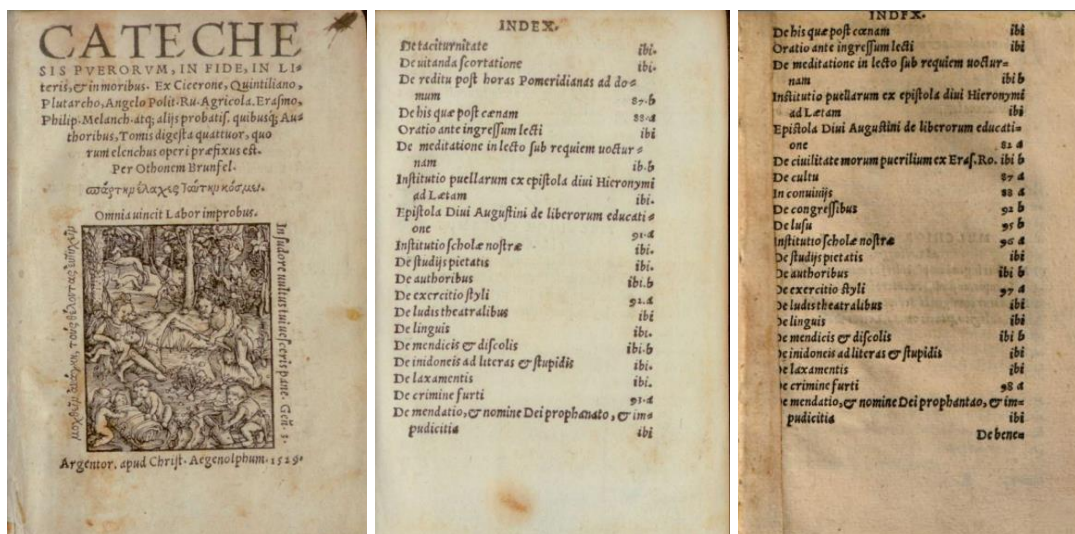 CATECHE
SIS PVERORVM, IN FIDE, IN LI⸗
teris, & in moribus. Ex Cicerone, Quintiliano,
Plutarcho, Angelo Polit. Ru. Agricola. Erasmo,
Philip. Melanch. atq; alijs probatis. quibusq; Au⸗
thoribus, Tomis digesta quattuor, quo
rum elenchus operi præfixus est.
Per Othonem Brunfel.
Omnia uincit Labor improbus.
In sudore uultus tui uesceris pane. Gen. 3.
Argentor. apud Christ. Aegenolphum. 1529.
INDEX.
De taciturnitate ibi.
De uitanda scortatione ibi.
De reditu post horas Pomeridianas ad do⸗
mum 87.b
De his quæ post cœnam 88.a
Oratio ante ingressum lecti ibi
De meditatione in lecto sub requiem uoctur⸗
nam ib.b
Institutio puellarum ex epistola diui Hieronymi
ad Lætam ibi.
Epistola Diui Augustini de liberorum educati⸗
one 91.a
Institutio scholæ nostræ ibi.
De studijs pietatis ibi.
De authoribus ibi.b
De exercitio styli 92.a
De ludis theatralibus ibi
De linguis ibi.
De mendicis & discolis ibi.b
De inidoneis ad literas & stupidis ibi.
De laxamentis ibi.
De crimine furti 93.a
De mendatio, & nomine Dei prophanato, & im⸗
pudicitia ibi
INDEX.
De his quæ post cœnam ibi
Oratio ante ingressum lecti ibi
De meditatione in lecto sub requiem uoctur⸗
nam ibi b
Institutio puellarum ex epistola diui Hieronymi
ad Lætam ibi
Epistola Diui Augustini de liberorum educati⸗
one 82 a
De ciuilitate morum puerilium ex Eras. Ro. ibi b
De cultu 87 a
In conuiuijs 88 a
De congressibus 92 b
De lusu 95 b
Institutio scholæ nostræ 96 a
De studijs pietatis ibi
De authoribus ibi b
De exercitio styli 97 a
De ludis theatralibus ibi
De linguis ibi
De mendicis & discolis ibi b
De inidoneis ad literas & stupidis ibi
De laxamentis ibi
De crimine furti 98 a
De mendatio, & nomine Dei prophantao, & im⸗
pudicitia ibi
De bene⸗